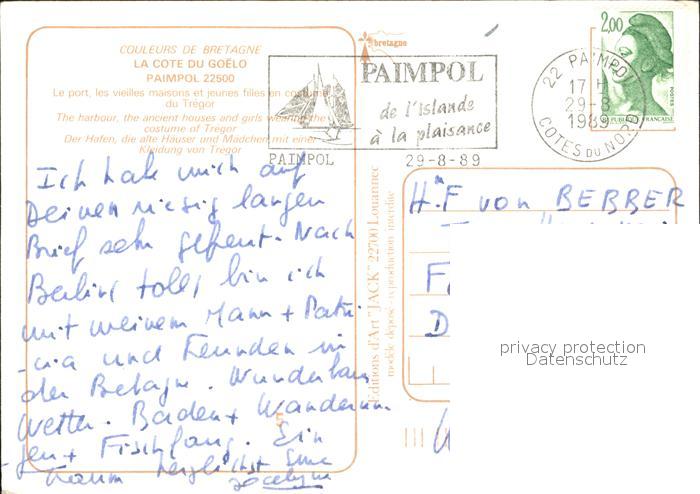 COULEURS DE BRETAGNE
LA COTE DU GOËLO
PAIMPOL 22500
Le port, les vieilles maisons et jeunes filles en costume
du Trégor
The harbour, the ancient houses and girls wearing the
costume of Tregor
Der Hafen, die alte Häuser und Mädchen mit einer
Kleidung von Tregor
bretagne
PAIMPOL
de l'Islande
à la plaisance
PAIMPOL
29-8-89
2,00
RÉPUBLIQUE FRANÇAISE
POSTES
22 PAIMPOL
17 H
29-8
1989
COTES DU NORD
Ich habe mich auf
Deinen riesig langen
Brief sehr gefreut. Nach
Berlin (toll) bin ich
mit meinem Mann + Patri
-cia und Freunden in
der Betagne. Wunderbares
Wetter. Baden + Wanderun
-gen + Fischfang. Ein
Traum herzlichst Eure
Jocelyne
Editions d'Art "JACK" 22700 Louannec
modèle déposé - reproduction interdite
Hn F von BEBBER
F
D
privacy protection
Datenschutz